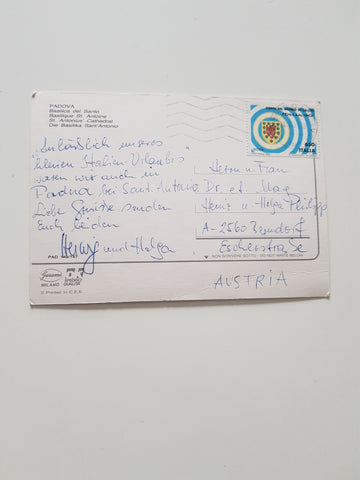 PADOVA
Basilica del Santo
Basilique St. Antoine
St. Antonius' Cathedral
Die Basilika Sant'Antonio
650
ITALIA
Anläßlich unseres
kleinen Italien-Urlaubes
waren wir auch in
Padua bei Sant. Antonio
Liebe Grüsse senden
Euch beiden
und Helga
Herrn u. Frau
Dr. et Mag
Heinz u. Helga Philipp
A-2560 Berndorf
AUSTRIA
PAD
MILANO
NON SCRIVERE SOTTO - DO NOT WRITE BELOW
Printed in C.E.E.